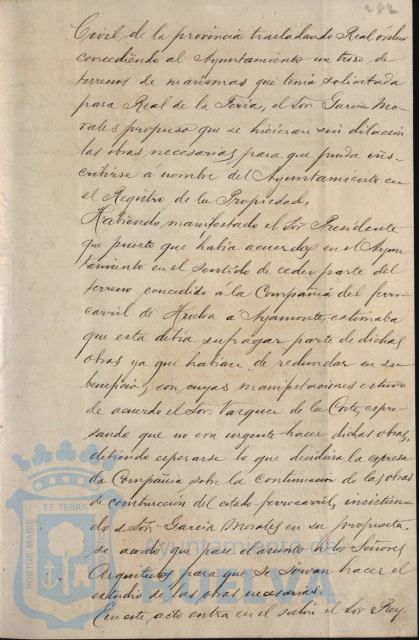 282
Civil de la provincia trasladando Real orden
concediendo al Ayuntamiento un trozo de
terrenos de marismas que tenia solicitada
para Real de la Feria, el Sor. Garcia Mo-
rales propuso que se hicieran sin dilacion
las obras necesarias para que pueda ins-
cribirse á nombre del Ayuntamiento en
el Registro de la Propiedad.
Habiendo manifestado el Sor. Presidente
que puesto que habia acuerdos en el Ayun-
tamiento en el sentido de ceder parte del
terreno concedido á la Compañia del ferro-
carril de Huelva a Ayamonte, estimaba
que esta debia sufragar parte de dichas
obras ya que habian de redundar en su
beneficio, con cuyas manifestaciones estuvo
de acuerdo el Sor. Vazquez de la Corte, expre-
sando que no era urgente hacer dichas obras,
debiendo esperarse lo que decidiera la expresa-
da Compañia sobre la continuacion de las obras
de construccion del citado ferrocarril, insistien-
do el Sor. Garcia Morales en su propuesta,
se acordó que pase el asunto á los Señores
Arquitectos para que se sirvan hacer el
estudio de las obras necesarias.
En este acto entra en el salon el Sor. Rey.
PORTUS MARIS ET TERRAE
Ayuntamiento de
HUELVA